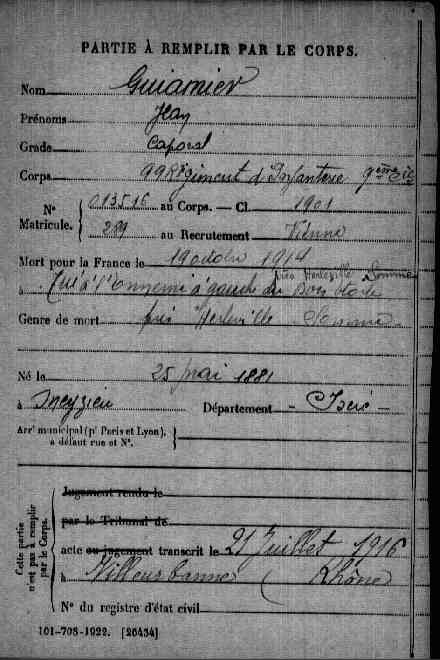 PARTIE À REMPLIR PAR LE CORPS.
Nom Guiamier
Prénoms Jean
Grade Caporal
Corps 99 Régiment d'Infanterie 9ème Cie
N° Matricule. { 013516 au Corps. — Cl. 1901
289 au Recrutement Vienne
Mort pour la France le 19 octobre 1914
près Herleville Somme
à Tué à l'Ennemi à gauche du Bois étoilé
Genre de mort près Herleville Somme
Né le 25 mai 1881
à Meyzieu Département - Isère -
Arrt municipal (pr Paris et Lyon), à défaut rue et N°. }
Cette partie n'est pas à remplir par le Corps.
Jugement rendu le
par le Tribunal de
acte ou jugement transcrit le 21 Juillet 1916
à Villeurbanne ( Rhône
N° du registre d'état civil
101-708-1922. [26434]